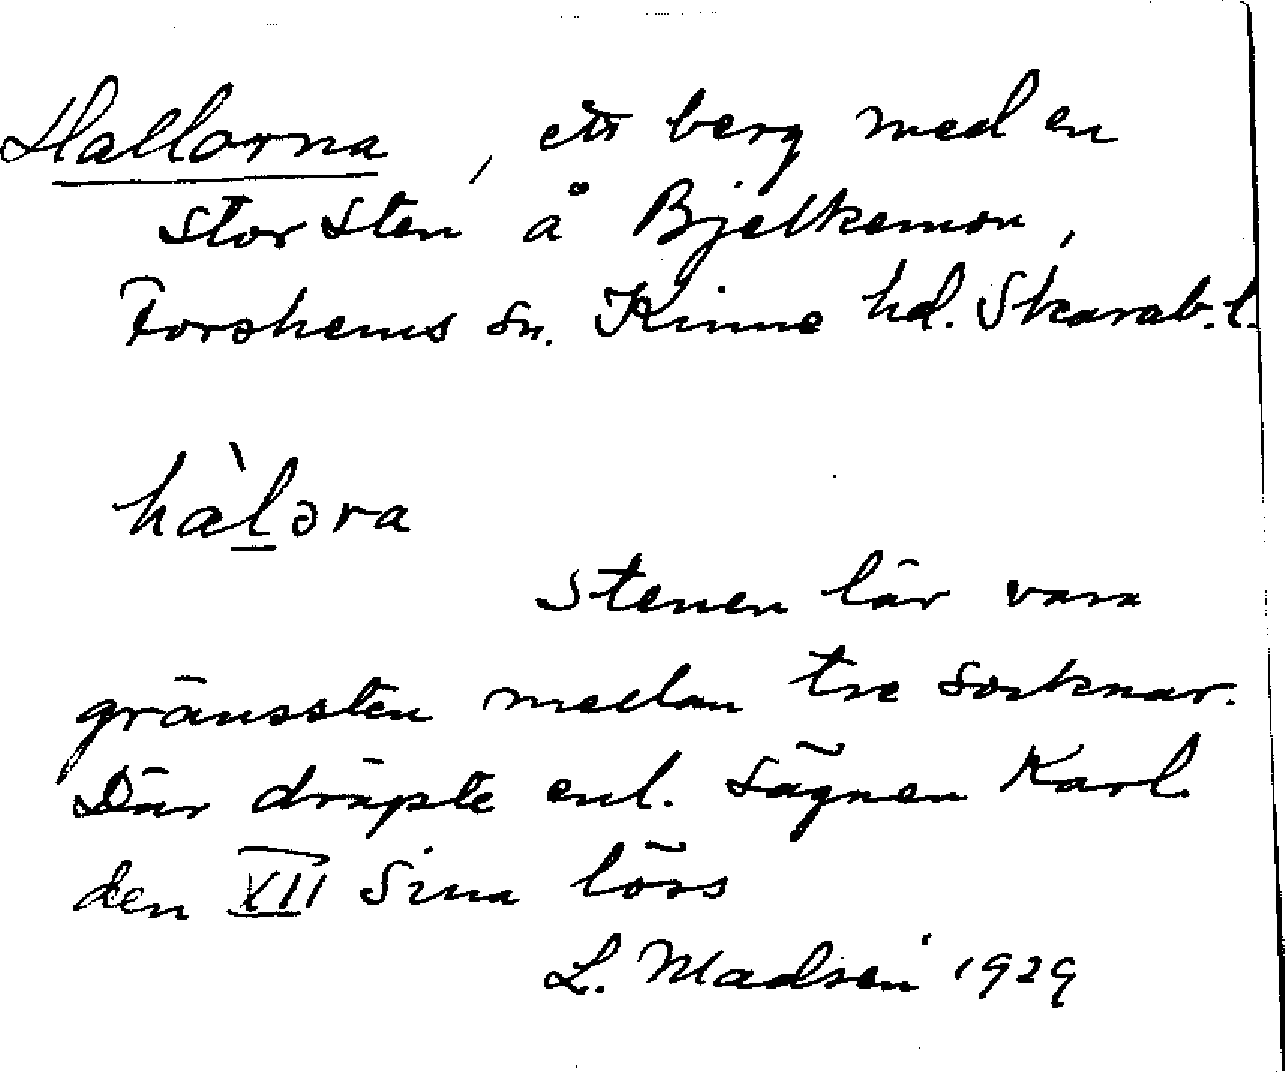 Hallorna, ett berg med en
stor sten å Bjelkemon,
Forshems sn. Kinne hd. Skarab.l.
hàl̲əra
Stenen lär vara
gränssten mellan tre socknar.
Där dräpte enl. sägnen Karl
den XII sina löss
L. Madsén 1929